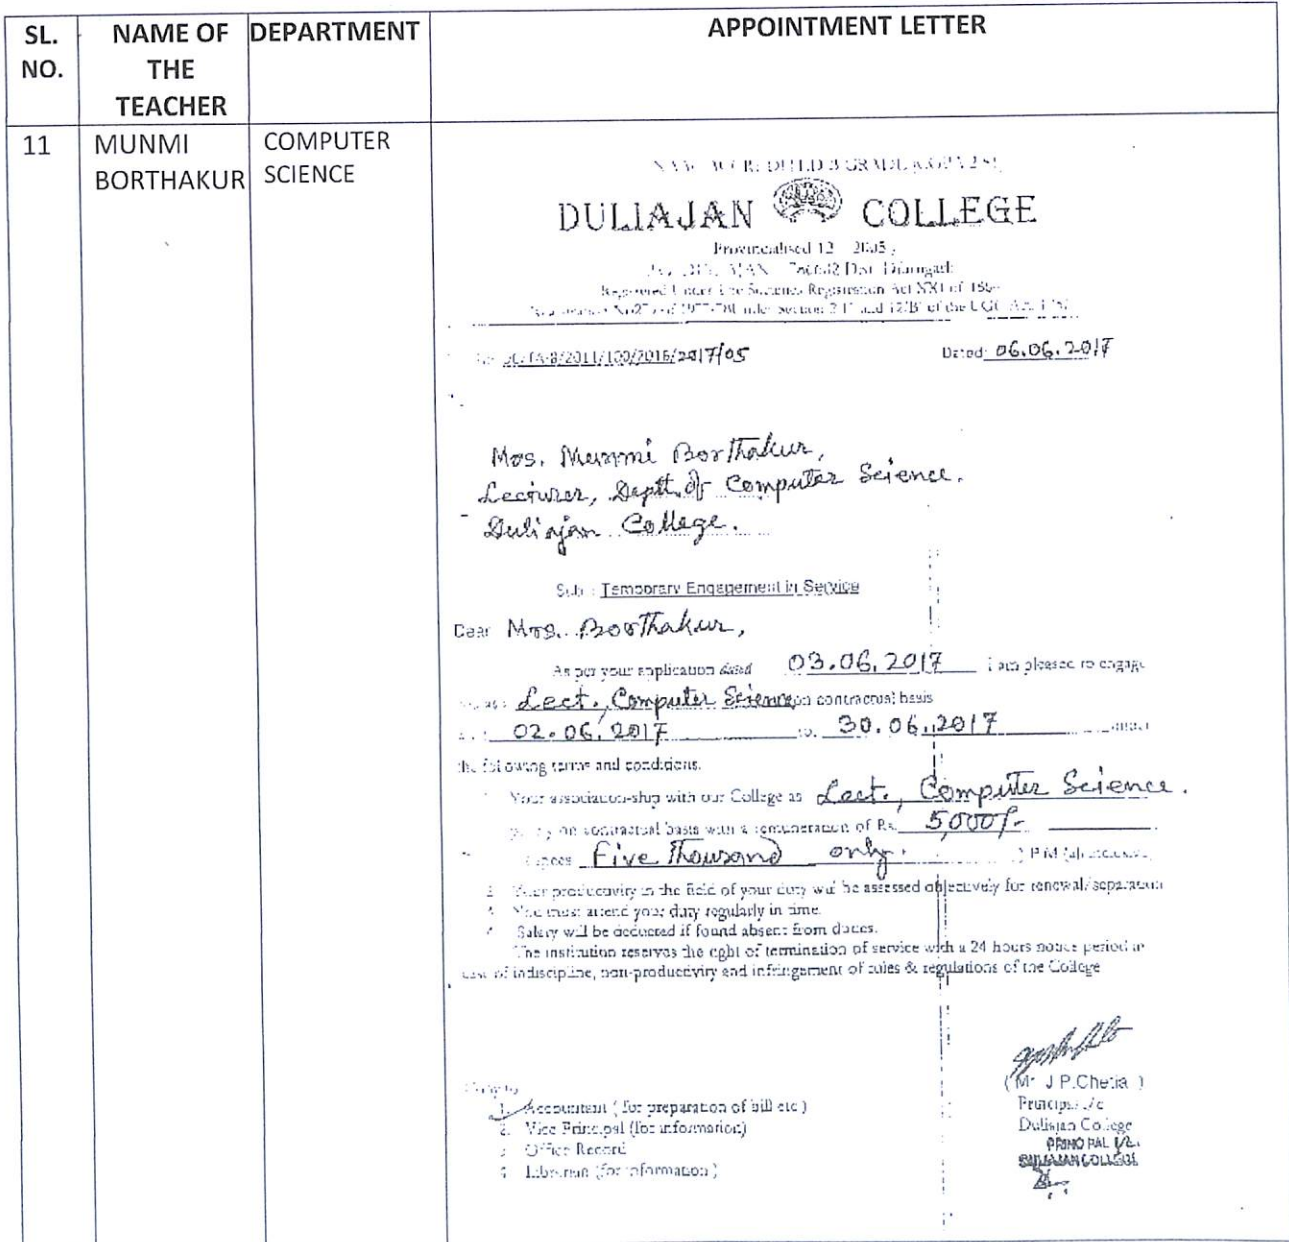 SL. NO.
NAME OF THE TEACHER
DEPARTMENT
APPOINTMENT LETTER
11
MUNMI BORTHAKUR
COMPUTER SCIENCE
DULIAJAN COLLEGE
Provincialised
Registered Under The Societies Registration Act XXI of
under Section and of the UGC
/2011/100/2016/2017/05
Dated: 06.06.2017
Mrs. Munmi Borthakur,
Lecturer, Deptt. of Computer Science.
Duliajan College.
Sub : Temporary Engagement in Service
Dear Mrs. Borthakur,
As per your application dated 03.06.2017 I am pleased to engage
as Lect., Computer Science on contractual basis
02.06.2017 to 30.06.2017 under
the following terms and conditions.
Your association-ship with our College as Lect., Computer Science.
on contractual basis with a remuneration of Rs. 5,000/-
Rupees Five Thousand only. ) P.M
Your productivity in the field of your duty will be assessed objectively for renewal/separation
You must attend your duty regularly in time.
Salary will be deducted if found absent from duties.
The institution reserves the right of termination of service with a 24 hours notice period in
case of indiscipline, non-productivity and infringement of rules & regulations of the College
( Mr J P.Chetia )
Principal i/c
Duliajan College
PRINCIPAL I/c.
DULIAJAN COLLEGE
Copy to
1. Accountant ( for preparation of bill etc )
2. Vice Principal (for information)
3 Office Record
4 Librarian (for information )